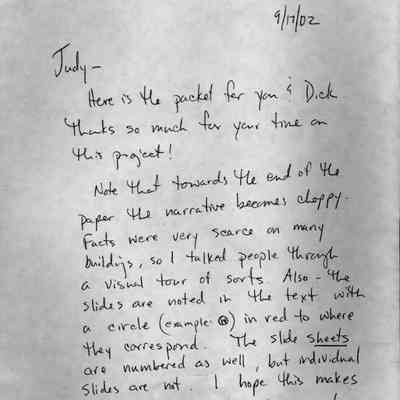 9/17/02
Judy -
Here is the packet for you & Dick.
Thanks so much for your time on
this project!
Note that towards the end of the
paper the narrative becomes choppy.
Facts were very scarce on many
buildings, so I talked people through
a visual tour of sorts. Also - the
slides are noted in the text with
a circle (example: ) in red to where
they correspond. The slide sheets
are numbered as well, but individual
slides are not. I hope this makes